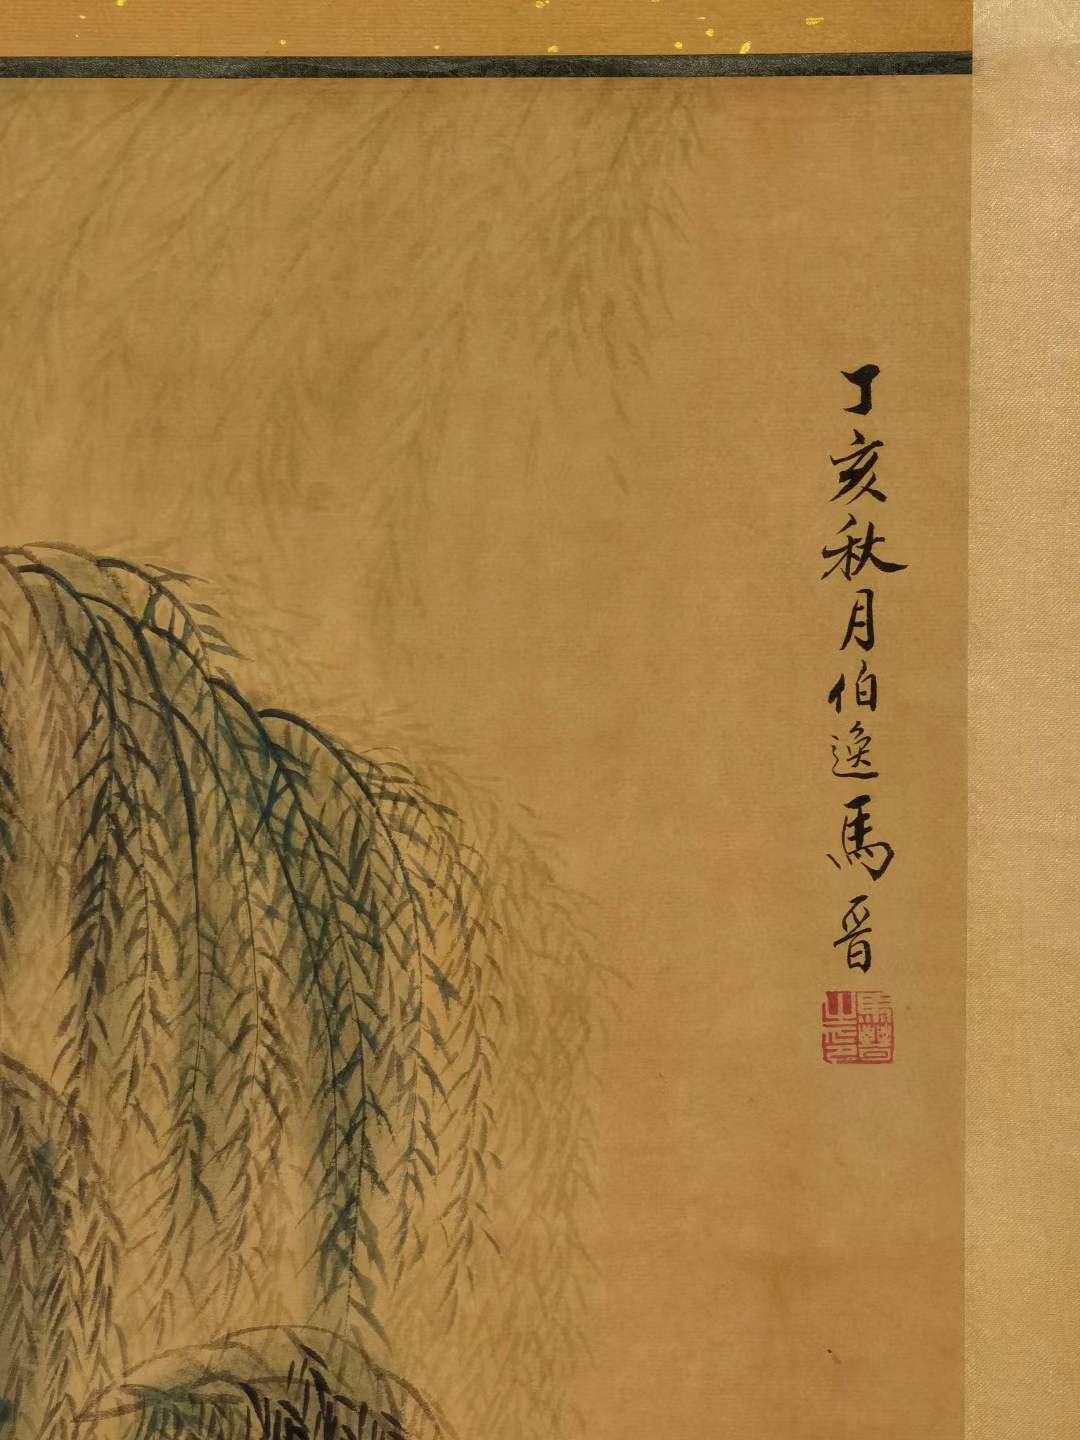 丁亥秋月伯逸馬晉
馬晉
之印